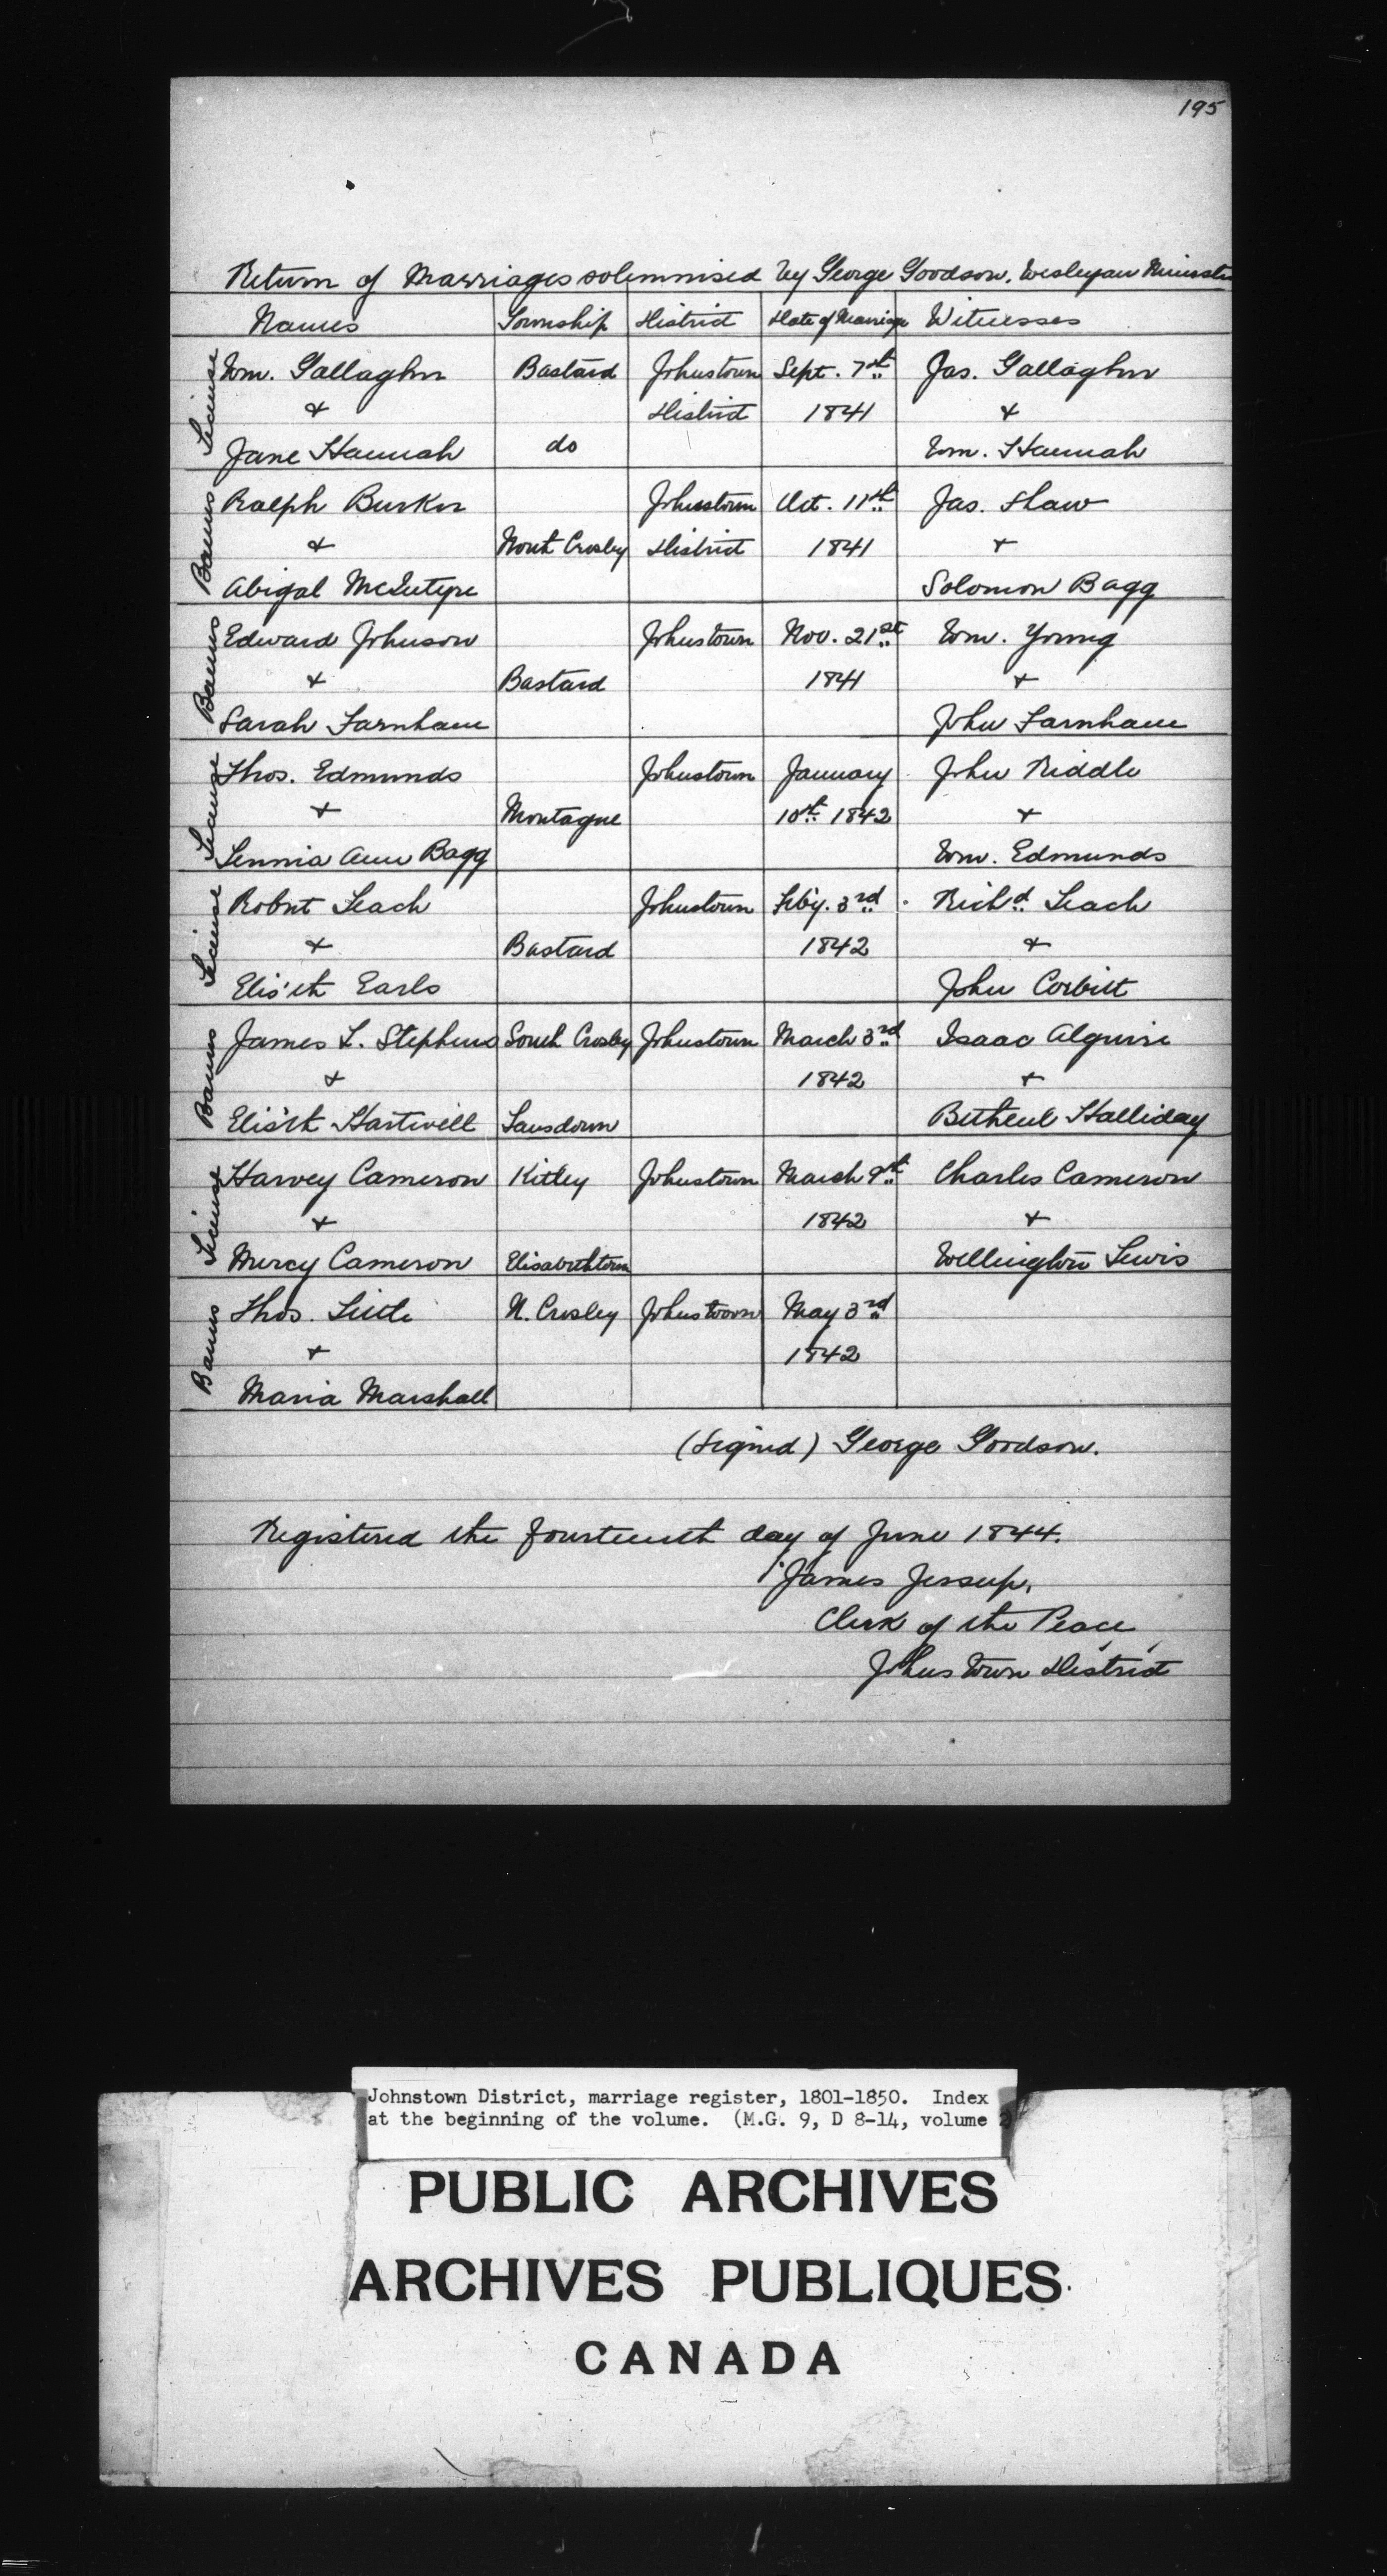 195
Return of Marriages solemnised by George Goodson, Wesleyan Minister
Names Township District Date of Marriage Witnesses
License Wm. Gallagher Bastard Johnstown Sept. 7th Jas. Gallagher
& District 1841 &
Jane Hannah do Wm. Hannah
Banns Ralph Burker Johnstown Oct. 11th Jas. Shaw
& North Crosby District 1841 &
Abigal McIntyre Solomon Bagg
Banns Edward Johnson Johnstown Nov. 21st Wm. Young
& Bastard 1841 &
Sarah Farnham John Farnham
License Thos. Edmunds Johnstown January John Riddle
& Montague 10th 1842 &
Ann Bagg Wm. Edmunds
License Robert Leach Johnstown Feby. 3rd Richd. Leach
& Bastard 1842 &
Elis'th Earls John Corbitt
Banns James L. Stephens South Crosby Johnstown March 3rd Isaac Alguire
& 1842 &
Elis'th Hartwell Lansdown Halliday
License Harvey Cameron Kitley Johnstown March 9th Charles Cameron
& 1842 &
Mercy Cameron Elisabethtown Wellington Lewis
Banns Thos. Little N. Crosby Johnstown May 3rd
& 1842
Maria Marshall
(Signed) George Goodson.
Registered the fourteenth day of June 1844.
James Jessup,
Clerk of the Peace
Johnstown District
Johnstown District, marriage register, 1801-1850. Index
at the beginning of the volume. (M.G. 9, D 8-14, volume
PUBLIC ARCHIVES
ARCHIVES PUBLIQUES
CANADA